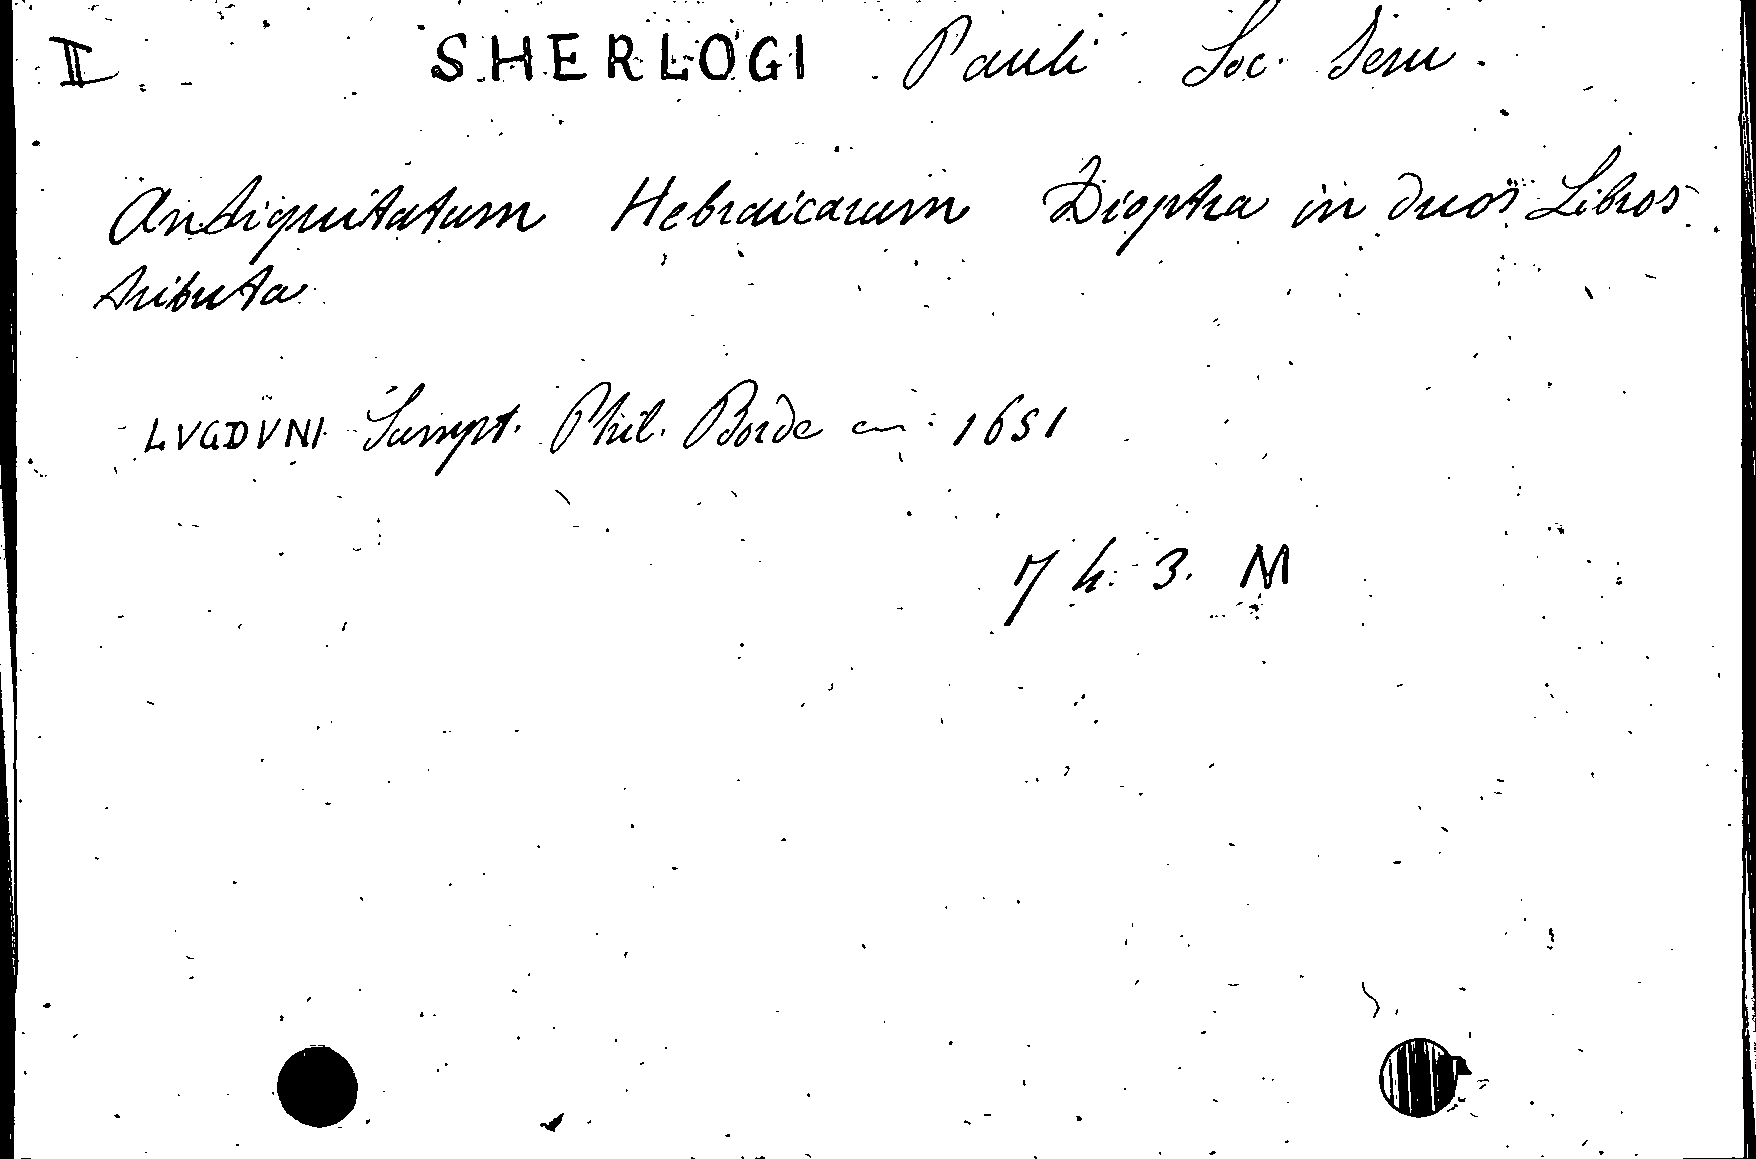 II SHERLOGI Pauli Soc. Jesu.
Antiquitatum Hebraicarum Dioptra in duos Libros
tributa
LVGDVNI Sumpt. Phil. Borde an: 1651
7 h. 3. M